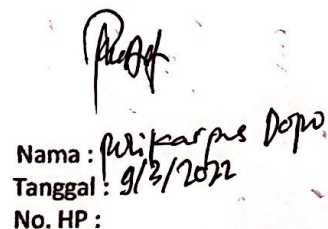 Nama : Polikarpus Dopo
Tanggal : 9/3/2022
No. HP :